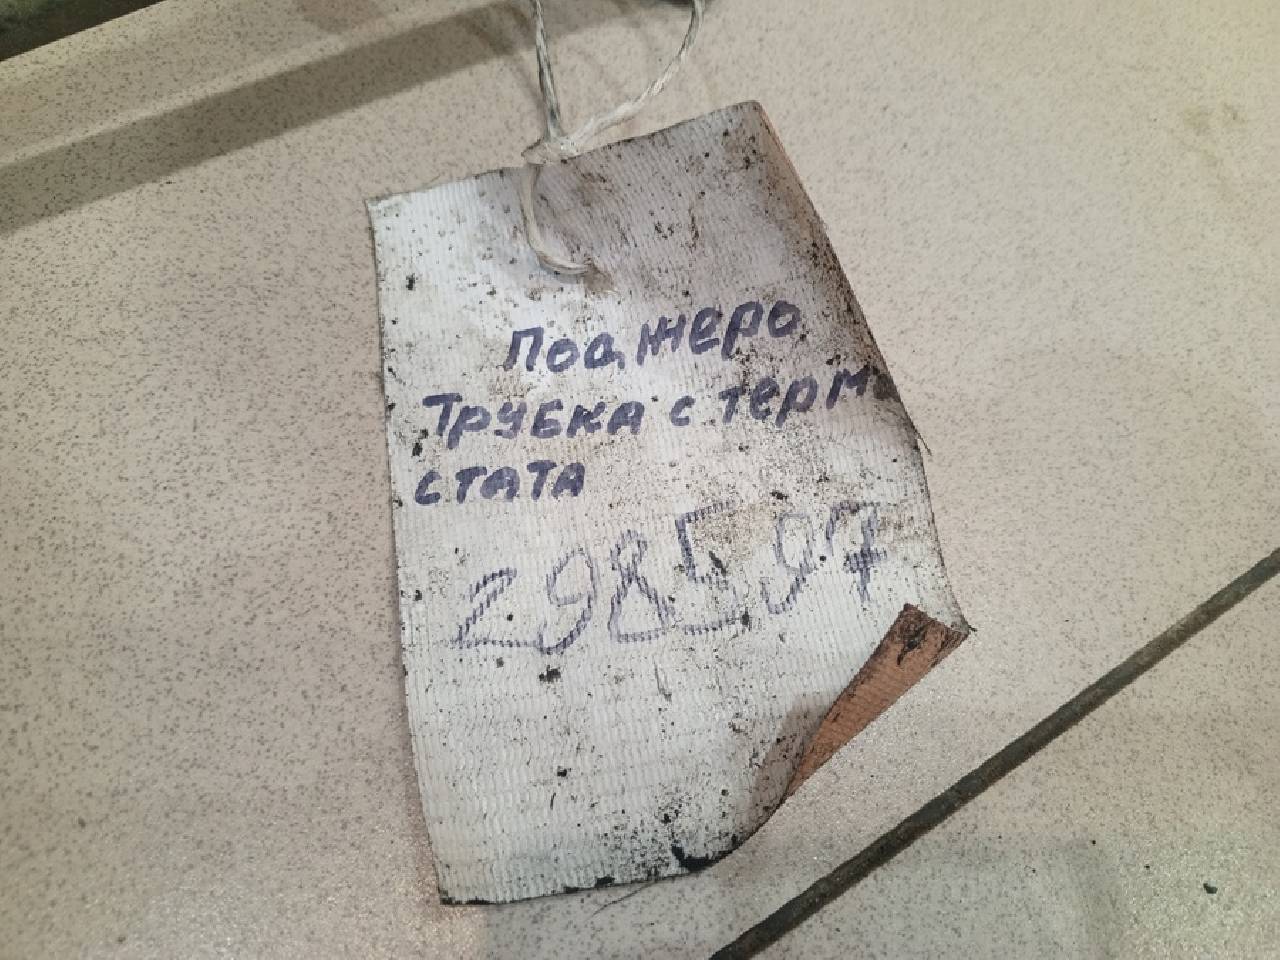 Поажеро
Трубка с термо
стата
298597